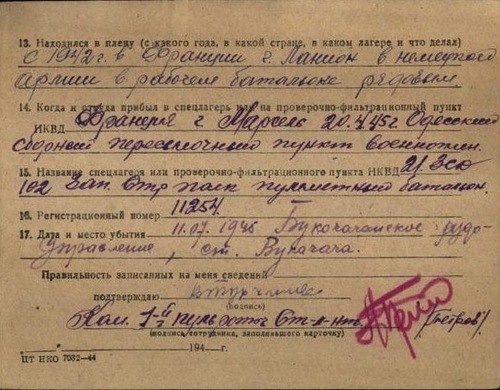 13. Находился в плену (с какого года, в какой стране, в каком лагере и что делал)
с 1942 г. в Франции г. Лanион в немецкой
армии в рабочем батальоне рядовым.
14. Когда и откуда прибыл в спецлагерь или на проверочно-фильтрационный пункт
НКВД Франция г. Марсель 20.4.45 г. Одесский
сборный пересылочный пункт военноплен.
15. Название спецлагеря или проверочно-фильтрационного пункта НКВД 21. Зсд
102 Зап. Стр. полк пулеметный батальон.
16. Регистрационный номер 11254
17. Дата и место убытия 11.07.1945 Букочачинское рудо-
управление, ст. Букачача.
Правильность записанных на меня сведений
подтверждаю
(подпись)
Ком. 1-й Ст. л-нт. (Петров)
(подпись сотрудника, заполнявшего карточку)
194 г.
ЦТ НКО 7032—44